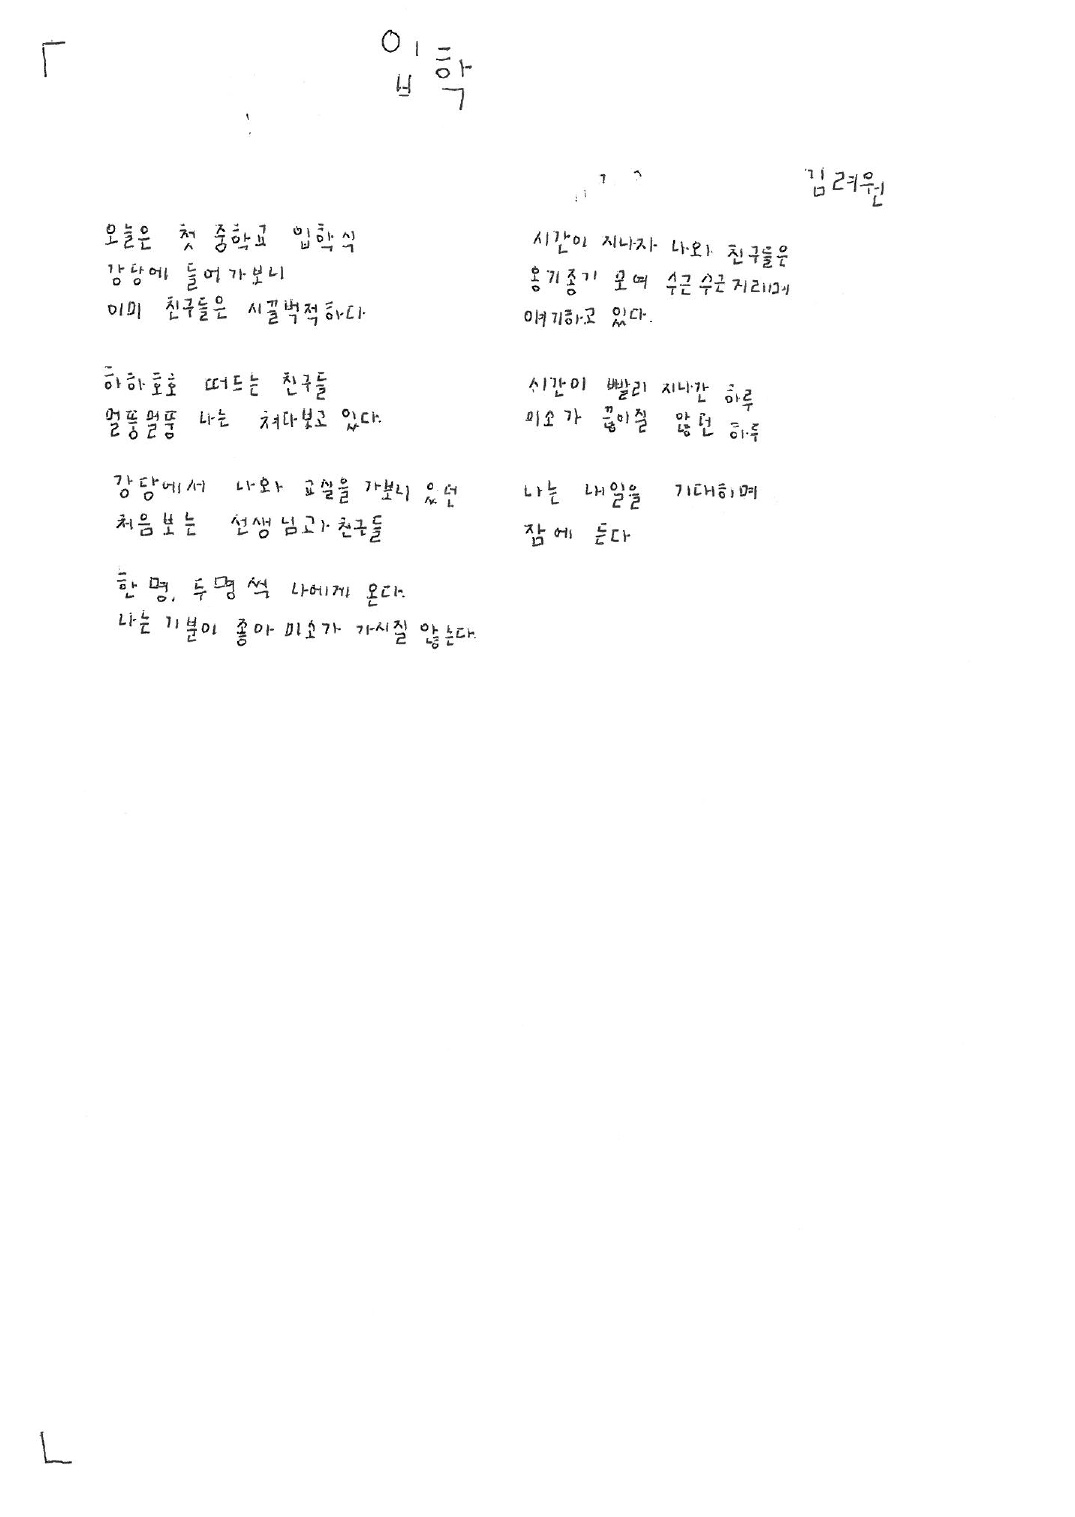 입학
김려원
오늘은 첫 중학교 입학식
강당에 들어가보니
이미 친구들은 시끌벅적하다
하하호호 떠드는 친구들
멀뚱멀뚱 나는 쳐다보고 있다.
강당에서 나와 교실을 가보니 있던
처음보는 선생님고과 친구들
한명, 두명씩 나에게 온다.
나는 기분이 좋아 미소가 가시질 않는다.
시간이 지나자 나와 친구들은
옹기종기 모여 수근수근 지래미게
이야기하고 있다.
시간이 빨리 지나간 하루
미소가 끊이질 않던 하루
나는 내일을 기대하며
잠에 든다